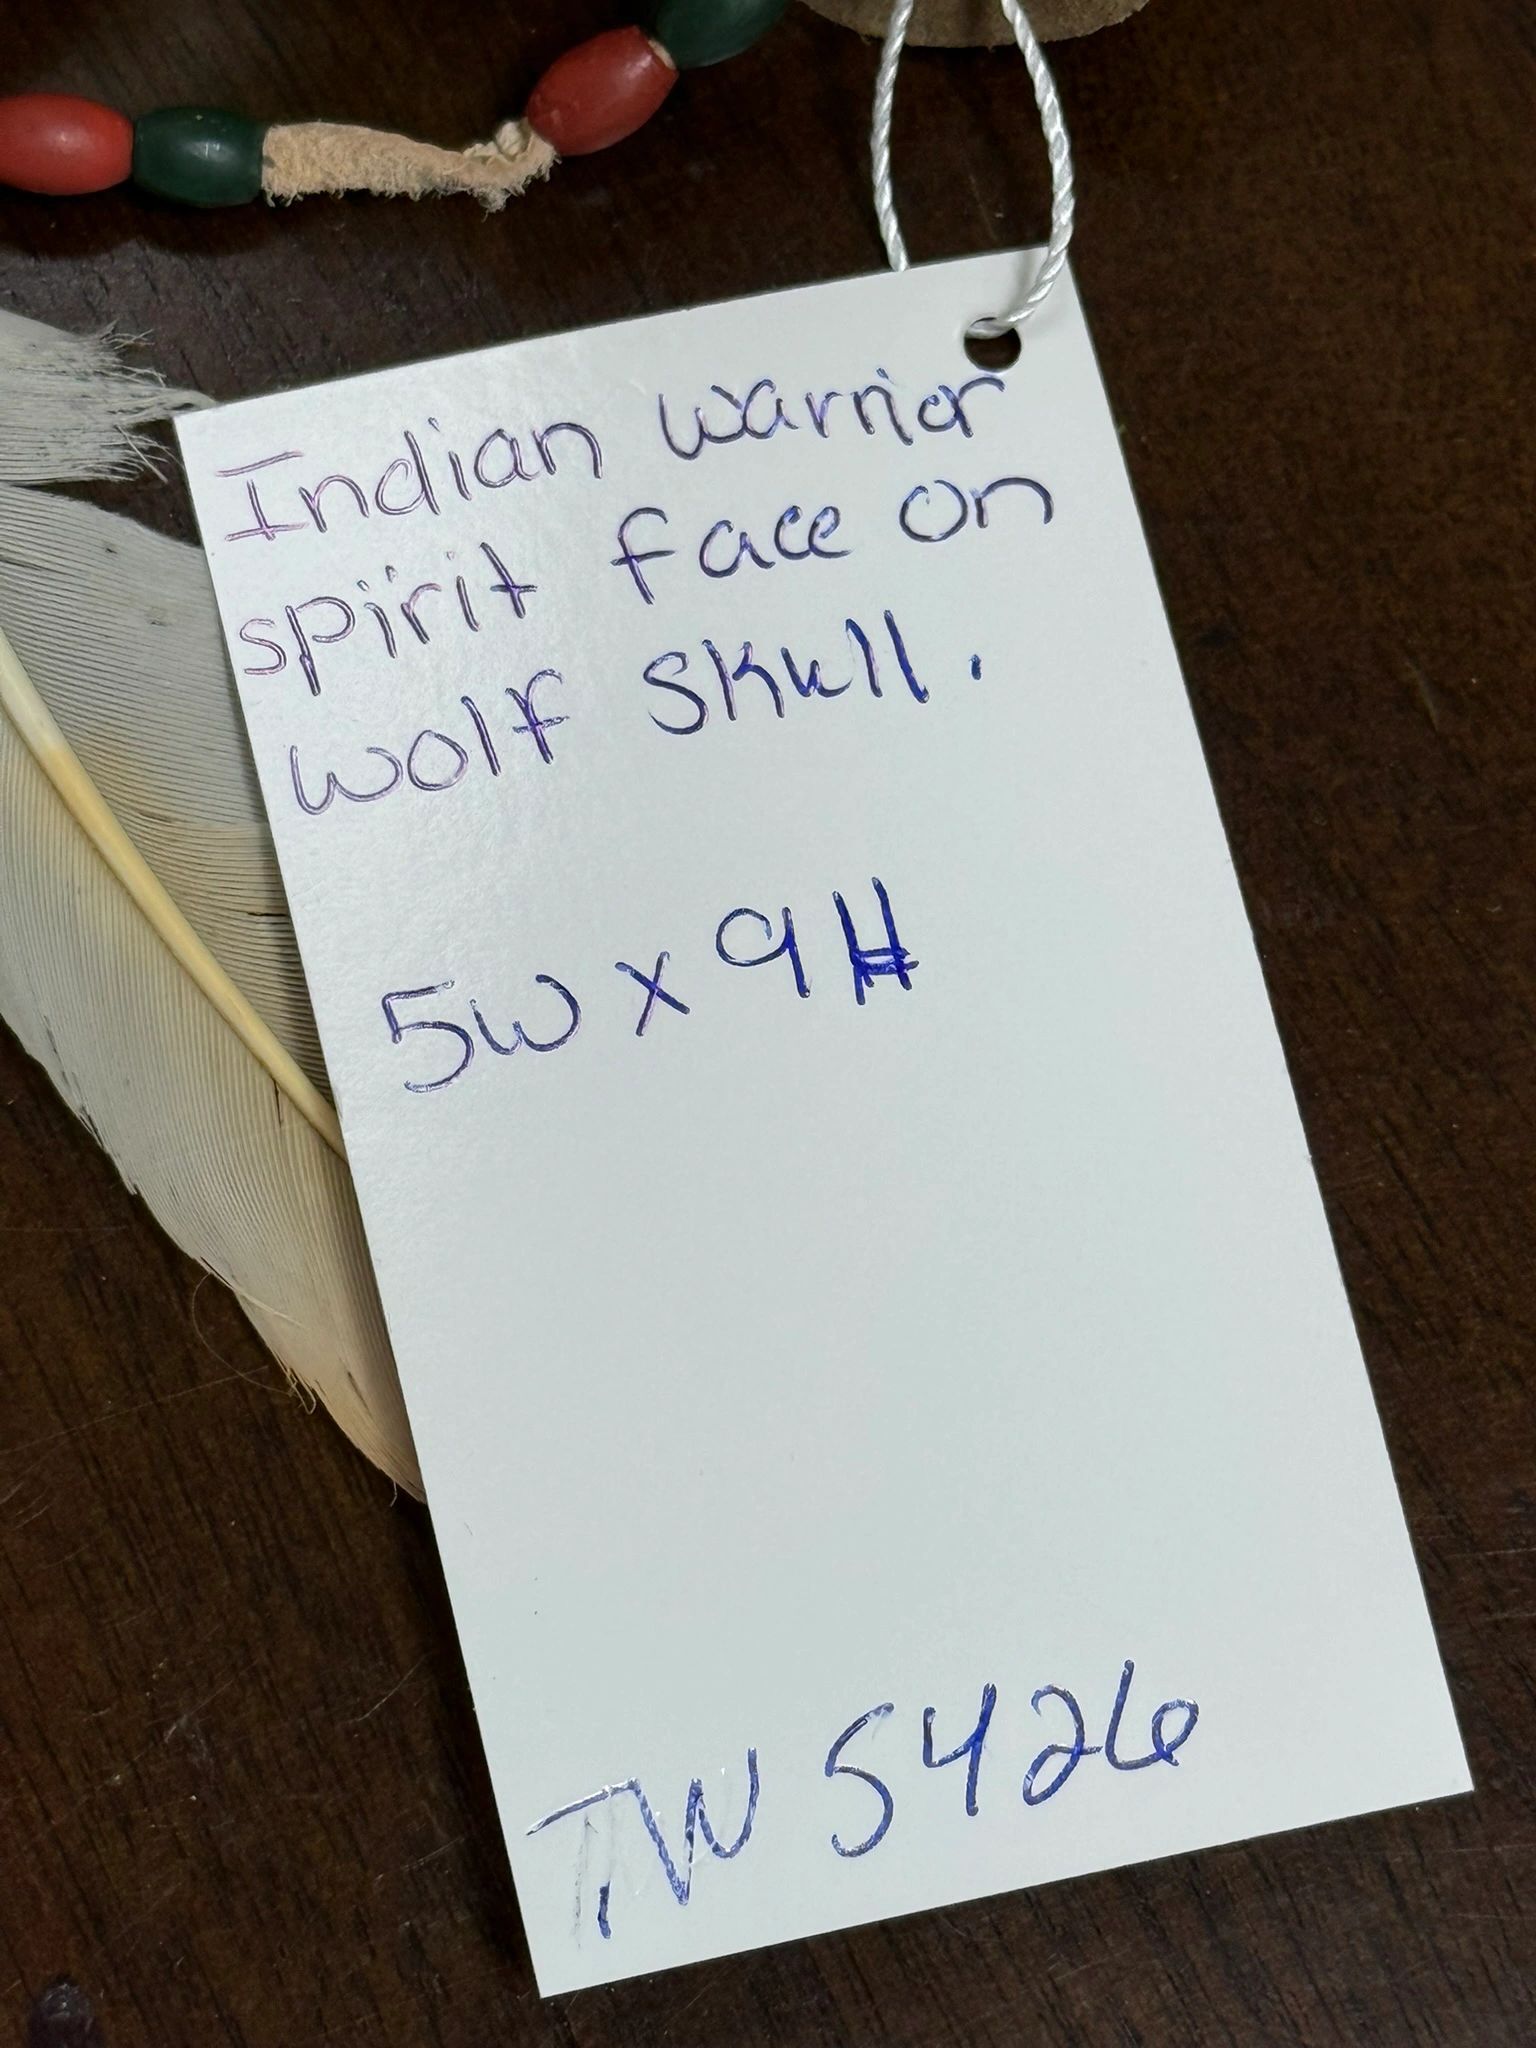 Indian warrior
spirit face on
wolf skull.
5W x 9H
TW 5426